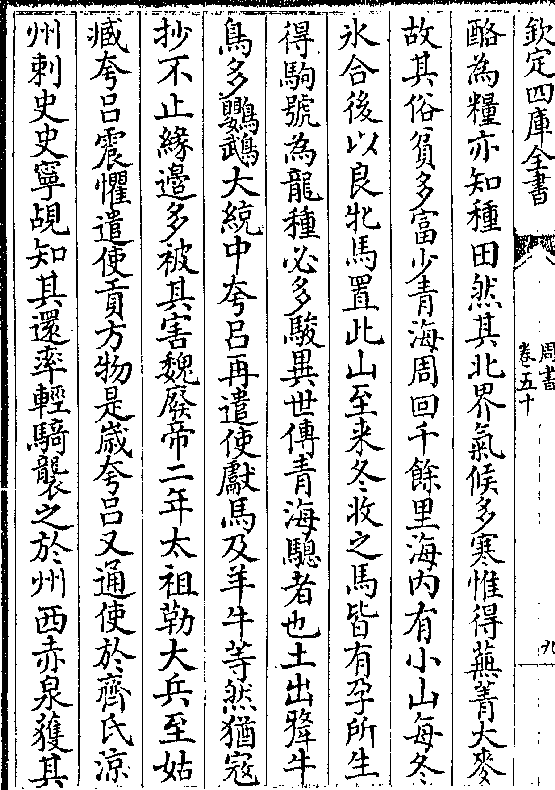 欽定四庫全書
周書
卷五十
九
酪為糧亦知種田然其北界氣候多寒惟得蕪菁大麥
故其俗貧多富少青海周回千餘里海内有小山每冬
氷合後以良牝馬置此山至来冬收之馬皆有孕所生
得駒號為龍種必多駿異世傳青海驄者也土出犛牛
鳥多鸚鵡大統中夸吕再遣使獻馬及羊牛等然猶冦
抄不止緣邉多被其害魏廢帝二年太祖勒大兵至姑
臧夸吕震懼遣使貢方物是嵗夸吕又通使於齊氏涼
州刺史史寧覘知其還率輕騎襲之於州西赤泉獲其